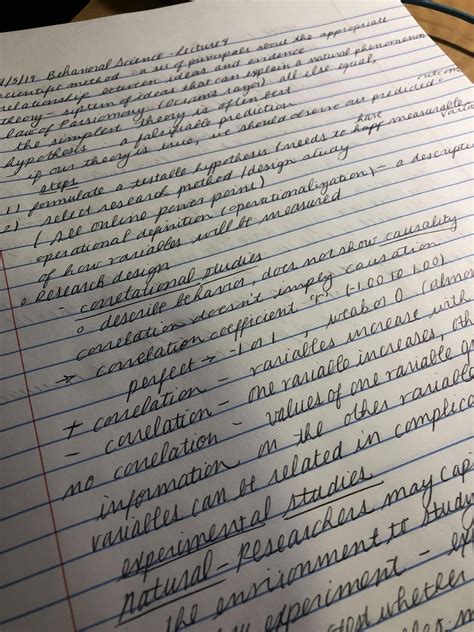 /5/19 Behavioral Science - Lecture 4
scientific method - a set of principals about the appropriate
relationship between ideas and evidence
theory - system of ideas that can explain a natural phenomenon
law of Parsimony (Occams razor) all else equal,
the simplest theory is often best
hypothesis - a falsifiable prediction
- if our theory is true, we should observe our predicted outcome
steps
1) formulate a testable hypothesis (needs to have measurable
2) select research method / design study
(All online power point)
operational definition (operationalization) - a descripti
of how variables will be measured
Research design
- correlational studies
describe behavior, does not show causality
correlation doesn't imply causation
→ correlation coefficient "r" (-1.00 to 1.00)
perfect → -1 or 1, weak or 0 (almo
+ correlation - variables increase with
- correlation - one variable increases, oth
no correlation - values of one variable
information on the other variable
variables can be related in complica
experimental studies
natural - researchers may cap
the environment to study
experiment - ex
whether